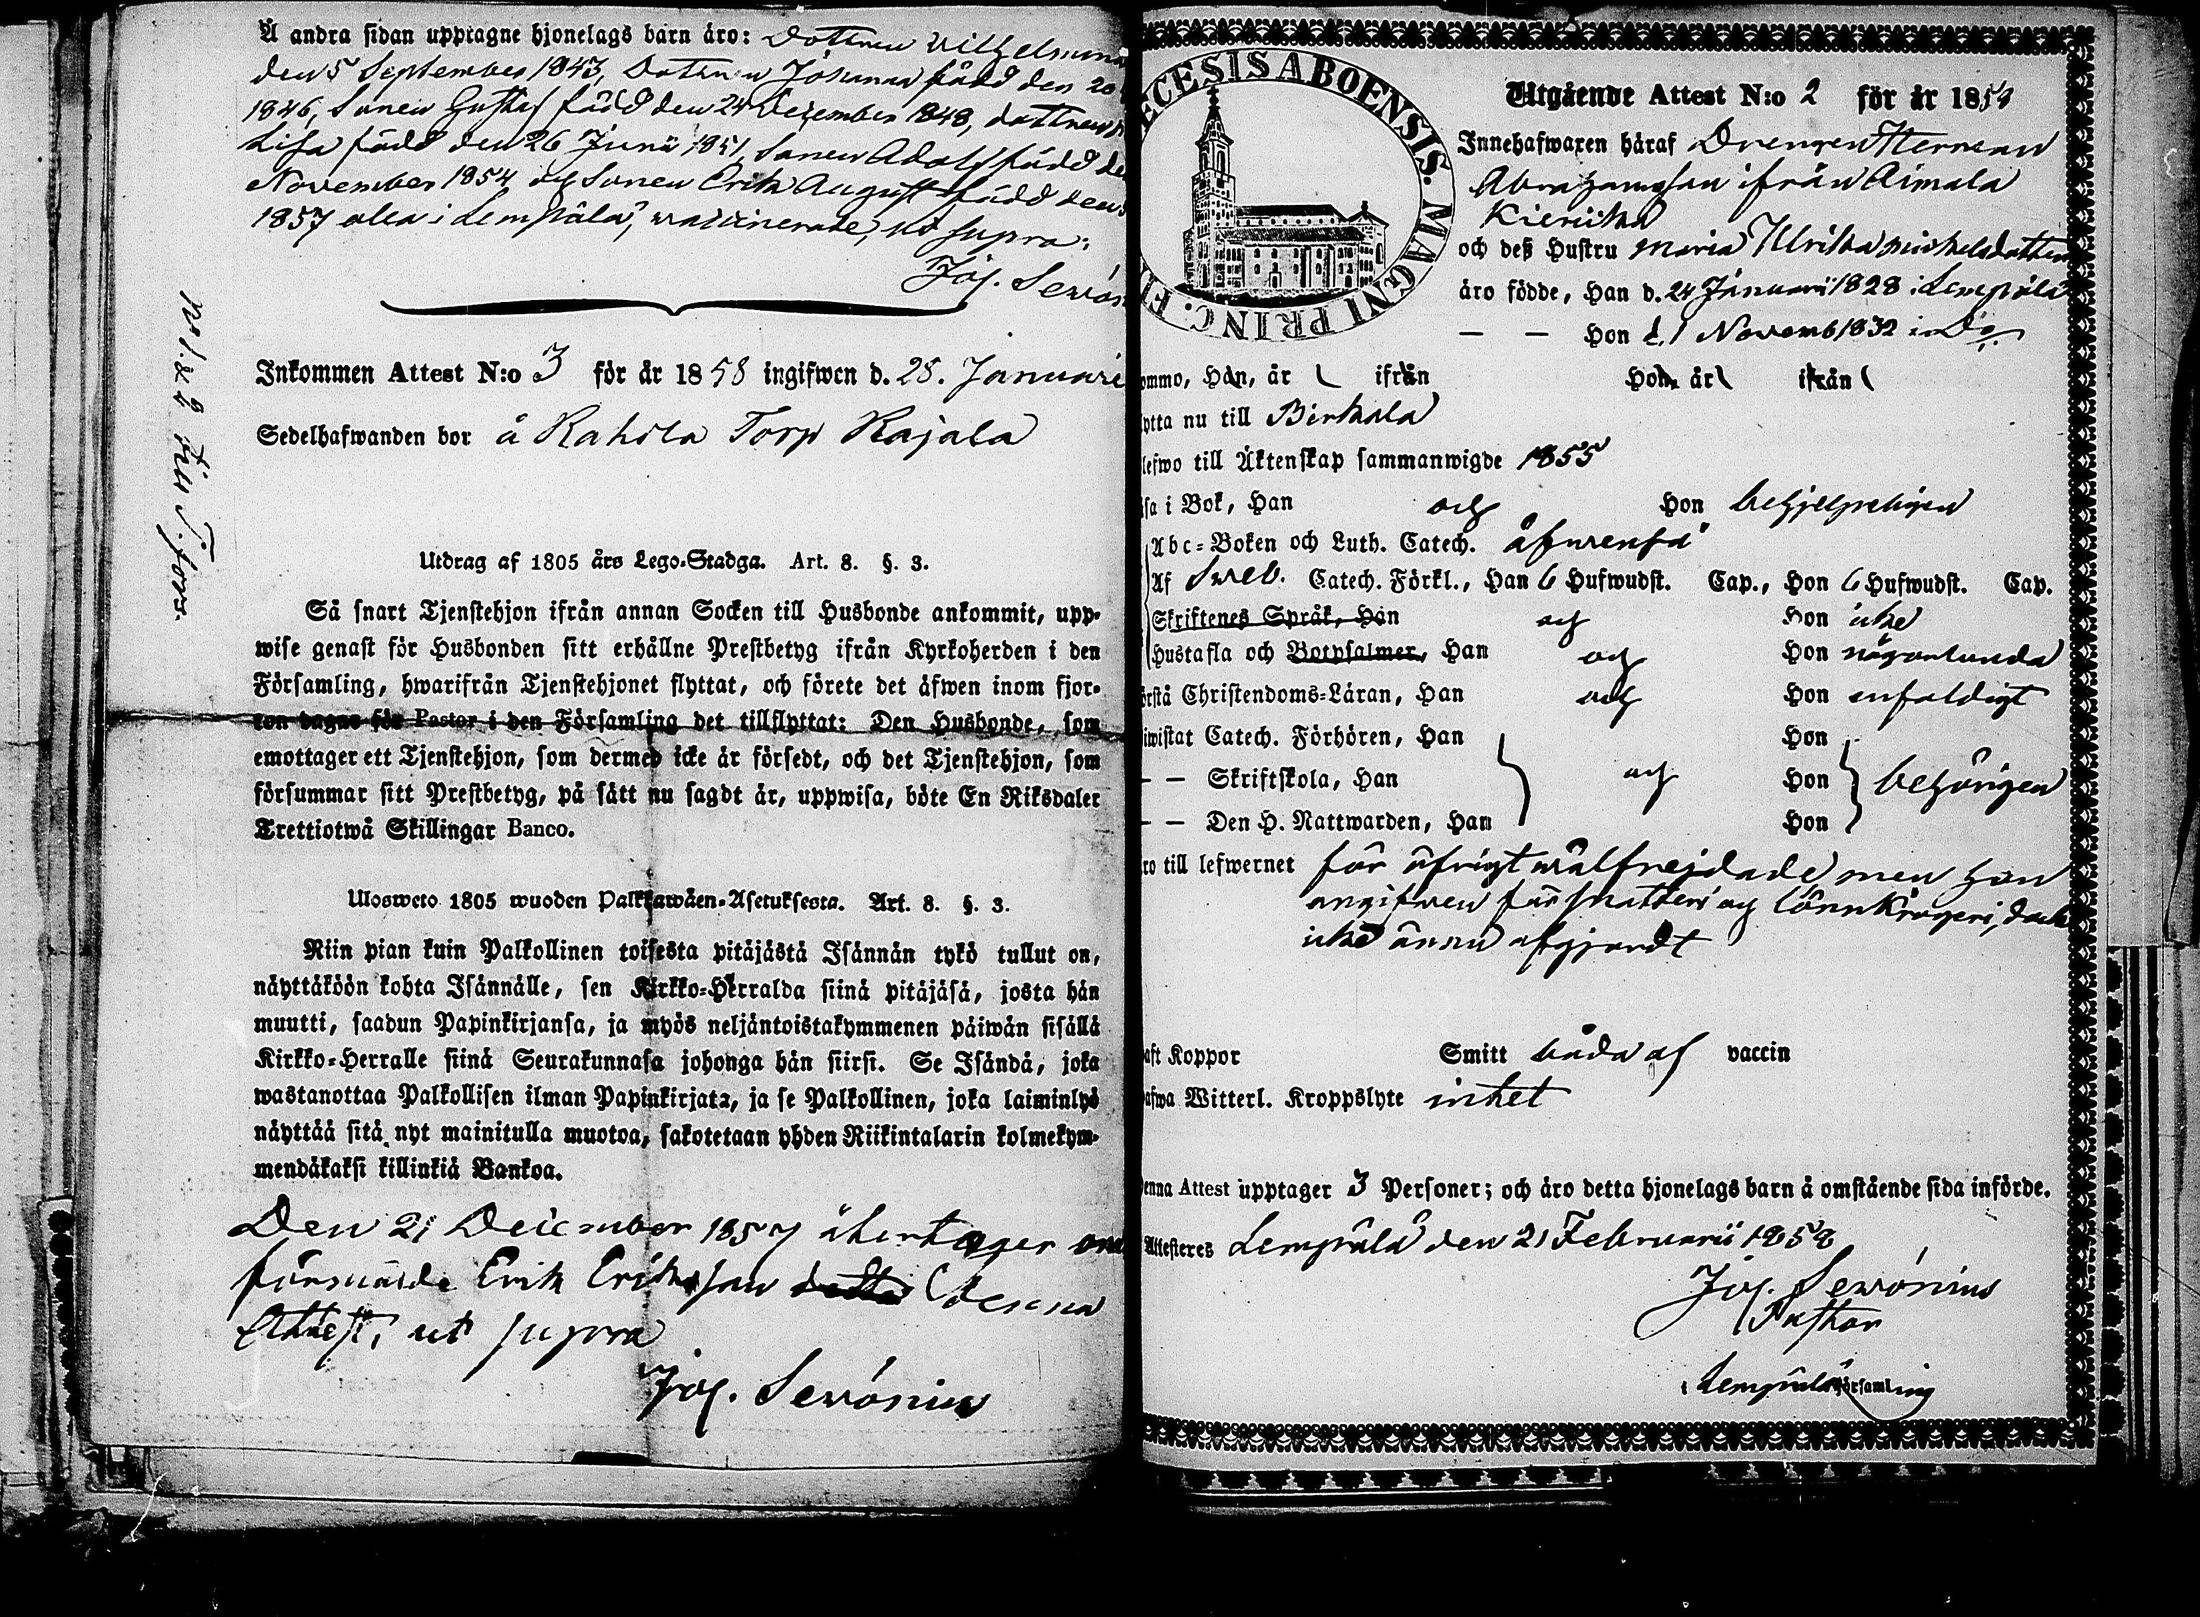 Å andra sidan upptagne hjonelags barn äro: Dottren Vilhelmina
den 5 September 1843, Dottren Johanna född den 20
1846, Sonen Gustaf född den 24 December 1848, dottren
Lisa född den 26 Junii 1851, Sonen Adolf född de
November 1854 och Sonen Erik August född den
1857 alla i Lempälä, vaccinerade, ut supra.
Joh. Sevón
Inkommen Attest N:o 3 för år 1858 ingifwen d. 28. Januari
Sedelhafwanden bor å Rahola Torp Rajala
Utdrag af 1805 års Lego-Stadga. Art. 8. §. 3.
Så snart Tjenstehjon ifrån annan Socken till Husbonde ankommit, upp-
wise genast för Husbonden sitt erhållne Prestbetyg ifrån Kyrkoherden i den
Församling, hwarifrån Tjenstehjonet flyttat, och förete det äfwen inom fjor-
ton dagar för Pastor i den Församling det tillflyttat: Den Husbonde, som
emottager ett Tjenstehjon, som dermed icke är försedt, och det Tjenstehjon, som
försummar sitt Prestbetyg, på sätt nu sagdt är, uppwisa, böte En Riksdaler
Trettiotwå Skillingar Banco.
Ulosweto 1805 wuoden Palkkawäen-Asetuksesta. Art. 8. §. 3.
Niin pian kuin Palkollinen toisesta pitäjästä Isännän tykö tullut on,
näyttäköön kohta Isännälle, sen Kirkko-Herralda siinä pitäjäsä, josta hän
muutti, saadun Papinkirjansa, ja myös neljäntoistakymmenen päiwän sisällä
Kirkko-Herralle siinä Seurakunnasa johonga hän siirsi. Se Isändä, joka
wastanottaa Palkollisen ilman Papinkirjata, ja se Palkollinen, joka laiminlyö
näyttää sitä nyt mainitulla muotoa, sakotetaan yhden Riikintalarin kolmekym-
mendäkaksi killinkiä Bankoa.
Den 21 December 1857 återtager
Erik Eriksson denna
Attest, ut supra
Joh. Sevónius
DIECESIS ABOENSIS. MAGNI PRINC. FI
Utgående Attest N:o 2 för år 1858
Innehafwaren häraf Drengen Herman
Abrahamsson ifrån Aimala
Kieriikka
och deß Hustru Maria Ulrika Michelsdotter
äro födde, Han d. 24 Januarii 1828 i Lempälä
— — Hon d. 1 Novemb 1832 i Do
ommo, Han, år ifrån Hon år ifrån
ytta nu till Birkala
lefwo till Äktenskap sammanwigde 1855
sa i Bok, Han och Hon behjelpeligen
Abc-Boken och Luth. Catech. äfvenså
Af Sveb. Catech. Förkl., Han 6 Hufwudst. Cap., Hon 6 Hufwudst. Cap.
Skriftenes Språk, Han och Hon icke
Hustafla och Botpsalmer, Han och Hon någorlunda
örstå Christendoms-Läran, Han och Hon enfaldigt
iwistat Catech. Förhören, Han Hon
— — Skriftskola, Han och Hon behörigen
— — Den H. Nattwarden, Han Hon
ro till lefwernet för öfrigt välfrejdade men han
angifven för snatteri och lönnkrögeri, dock
icke ännu afgjordt
aft Koppor Smitt båda af vaccin
afwa Witterl. Kroppslyte intet
enna Attest upptager 3 Personer; och äro detta hjonelags barn å omstående sida införde.
Attesteres Lempälä den 21 Februarii 1858
Joh. Sevónius
Pastor
i Lempälä församling